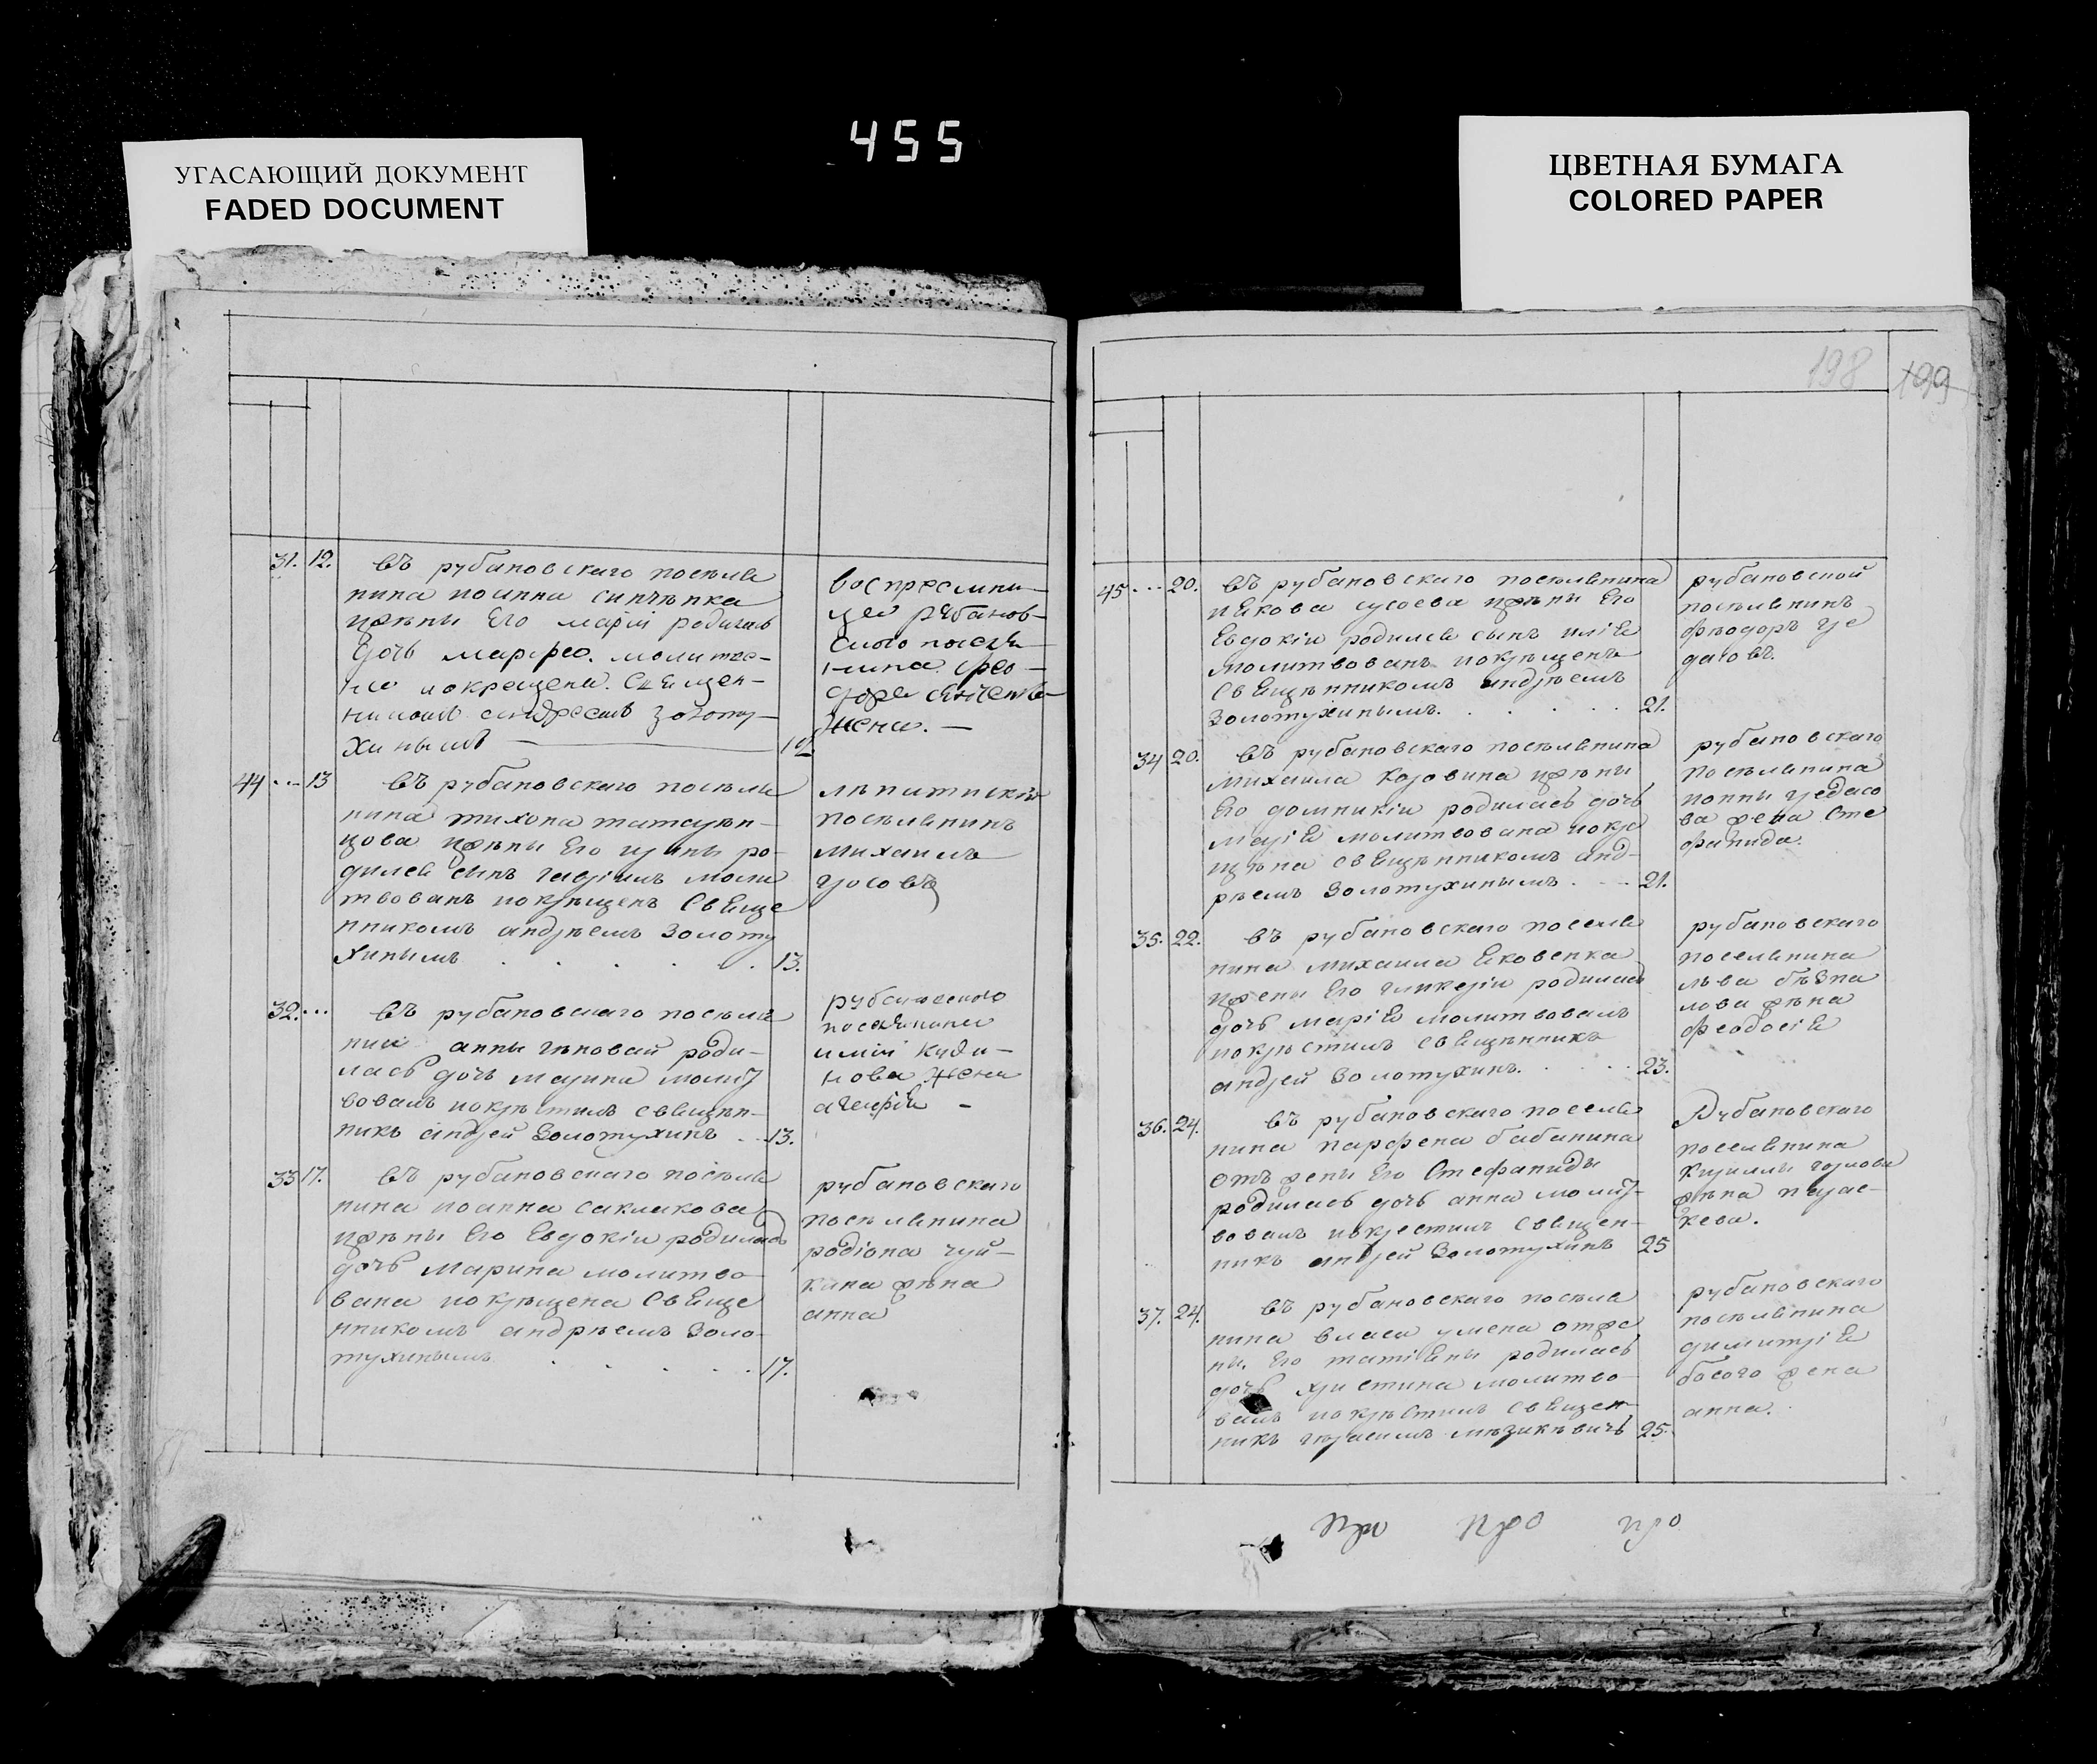 455
УГАСАЮЩИЙ ДОКУМЕНТ
FADED DOCUMENT
ЦВЕТНАЯ БУМАГА
COLORED PAPER
31. 12. въ рубановскаго поселя
нина иоанна
жены Его маріи родилась
дочь марфа. молитво-
на покрещена. Священ-
никомъ андреемъ Золоту-
хинымъ 12
воспреемни-
ца рубанов-
ского поселя-
нина фео-
дора
жена. —
44 ... 13 въ рубановскаго поселя
нина тихона
жены Его ро-
дился сынъ молит
твованъ покрещенъ Свяще
нникомъ андреемъ Золоту
хинымъ . . . . . 13.
поселянинъ
михаилъ
гусовъ
32. ... въ рубановскаго поселя
нки анны роди-
лась дочь марина молит
вовалъ покрестилъ священ-
никъ андрей Золотухинъ . . 13.
рубановского
поселянина
иліи куди-
нова жена
33 17. въ рубановскаго поселя
нина иоанна саклакова
жены Его Евдокіи родилась
дочь марина молитво
вана покрещена Свяще
нникомъ андреемъ Золо-
тухинымъ . . . . . 17.
рубановскаго
поселянина
родіона чуй-
кина жена
анна
198 199
45 ... 20. въ рубановскаго поселянина
иякова сусоева жены Его
Евдокіи родился сынъ иліа
молитвованъ покрещенъ
Священникомъ андреемъ
Золотухинымъ. . . . . . 21.
рубановской
поселянинъ
феодоръ
34 20. въ рубановскаго поселянина
михаила козовина жены
Его домникіи родилась дочь
маріа молитвована покре
щена священникомъ анд-
реемъ Золотухинымъ . . . 21.
рубановскаго
поселянина
жена Сте
фанида.
35. 22. въ рубановскаго поселя
нина михаила яковенка
жены Его гликеріи родилась
дочь маріа молитвовалъ
покрестилъ священникъ
андрей Золотухинъ. . . . . 23.
рубановскаго
поселянина
льва бъзпа
лова жена
феодосіа
36. 24. въ рубановскаго поселя
нина парфена бабанина
отъ жены Его Стефаниды
родилась дочь анна молит-
вовалъ покрестилъ священ-
никъ андрей Золотухинъ 25
Рубановскаго
поселянина
кирилы
жена парас-
кева.
37. 24. въ рубановскаго поселя
нина власа умена отже
ны Его татіаны родилась
дочь христина молитво-
валъ покрестилъ священ-
никъ герасимъ 25.
рубановскаго
поселянина
димитріа
босого жена
анна.
про про про